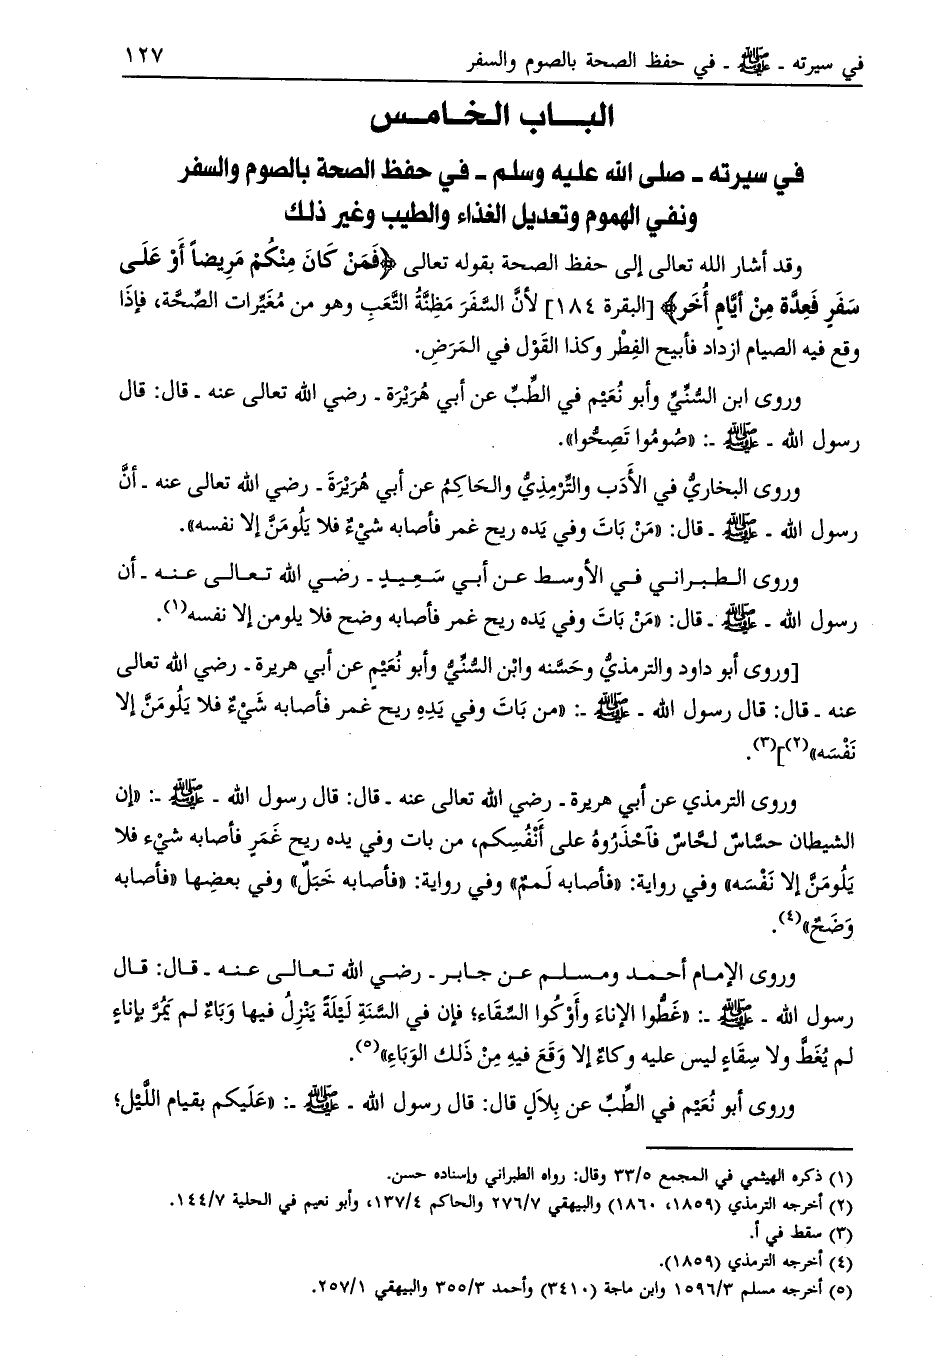 في سيرته ـ ﷺ ـ في حفظ الصحة بالصوم والسفر ١٢٧
البـــاب الـخـامـس
في سيرته ـ صلى الله عليه وسلم ـ في حفظ الصحة بالصوم والسفر
ونفي الهموم وتعديل الغذاء والطيب وغير ذلك
وقد أشار الله تعالى إلى حفظ الصحة بقوله تعالى ﴿فَمَنْ كَانَ مِنْكُمْ مَرِيضاً أَوْ عَلَى
سَفَرٍ فَعِدَّة مِنْ أَيَّامٍ أُخَر﴾ [البقرة ١٨٤] لأنَّ السَّفَرَ مَظِنَّةُ التَّعَبِ وهو من مُغَيِّرات الصِّحَّة، فإِذَا
وقع فيه الصيام ازداد فأبيح الفِطْر وكذا القَوْل في المَرَضِ.
وروى ابن السُّنِّيِّ وأبو نُعَيْم في الطِّبِّ عن أبي هُرَيْرَة ـ رضي الله تعالى عنه ـ قال: قال
رسول الله ـ ﷺ ـ: «صُومُوا تَصِحُّوا».
وروى البخاريُّ في الأَدَب والتِّرْمِذِيُّ والحَاكِمُ عن أبي هُرَيْرَةَ ـ رضي الله تعالى عنه ـ أنَّ
رسول الله ـ ﷺ ـ قال: «مَنْ بَاتَ وفي يَده ريح غمر فأصابه شيْءٌ فلا يَلُومَنَّ إلا نفسه».
وروى الـطـبـرانـي فـي الأوسـط عـن أبـي سَـعِـيـدٍ ـ رضـي الله تـعـالـى عـنـه ـ أن
رسول الله ـ ﷺ ـ قال: «مَنْ بَاتَ وفي يَده ريح غمر فأصابه وضح فلا يلومن إلا نفسه(١).
[وروى أبو داود والترمذيُّ وحَسَّنه وابْن السُّنِّيُّ وأبو نُعَيْمٍ عن أبي هريرة ـ رضي الله تعالى
عنه ـ قال: قال رسول الله ـ ﷺ ـ: «من بَاتَ وفي يَدِهِ ريح غمر فأصابه شَيْءٌ فلا يَلُومَنَّ إلا
نَفْسَه»(٢)](٣).
وروى الترمذي عن أبي هريرة ـ رضي الله تعالى عنه ـ قال: قال رسول الله ـ ﷺ ـ: «إن
الشيطان حسَّاسٌ لحَّاسٌ فآحْذَرُوهُ على أَنْفُسِكم، من بات وفي يده ريح غَمَرٍ فأصابه شيْء فلا
يَلُومَنَّ إلا نَفْسَه» وفي رواية: «فأصابه لَممٌ» وفي رواية: «فأصابه خَبَلٌ» وفي بعضِها «فأصابه
وَضَحٌ»(٤).
وروى الإمـام أحـمـد ومـسـلـم عـن جـابـر ـ رضـي الله تـعـالـى عـنـه ـ قـال: قـال
رسول الله ـ ﷺ ـ: «غَطُّوا الإناءَ وأَوْكُوا السِّقَاء؛ فإن في السَّنَةِ لَيْلَةً يَنْزِلُ فيها وَبَاءٌ لم يَمُرَّ بإناءٍ
لم يُغَطَّ ولا سِقَاءٍ ليس عليه وكاءٌ إلا وَقَعَ فيه مِنْ ذَلك الوَبَاءِ»(٥).
وروى أبو نُعَيْم في الطِّبِّ عن بِلاَلٍ قال: قال رسول الله ـ ﷺ ـ: «عَلَيكم بقيام اللَّيْل؛
(١) ذكره الهيثمي في المجمع ٣٣/٥ وقال: رواه الطبراني وإسناده حسن.
(٢) أخرجه الترمذي (١٨٥٩، ١٨٦٠) والبيهقي ٢٧٦/٧ والحاكم ١٣٧/٤، وأبو نعيم في الحلية ١٤٤/٧.
(٣) سقط في أ.
(٤) أخرجه الترمذي (١٨٥٩).
(٥) أخرجه مسلم ١٥٩٦/٣ وابن ماجة (٣٤١٠) وأحمد ٣٥٥/٣ والبيهقي ٢٥٧/١.